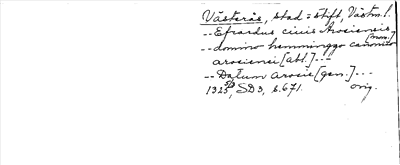 Västerås, stad o stift, Västm.l.
-- Efrardus ciuis Arosiensis [nom.]
-- domino hemminggo canonico
arosiensi [abl.] ---
-- Datum Arosie [gen.] ---
1325 5/3, SD 3, s. 671. orig.